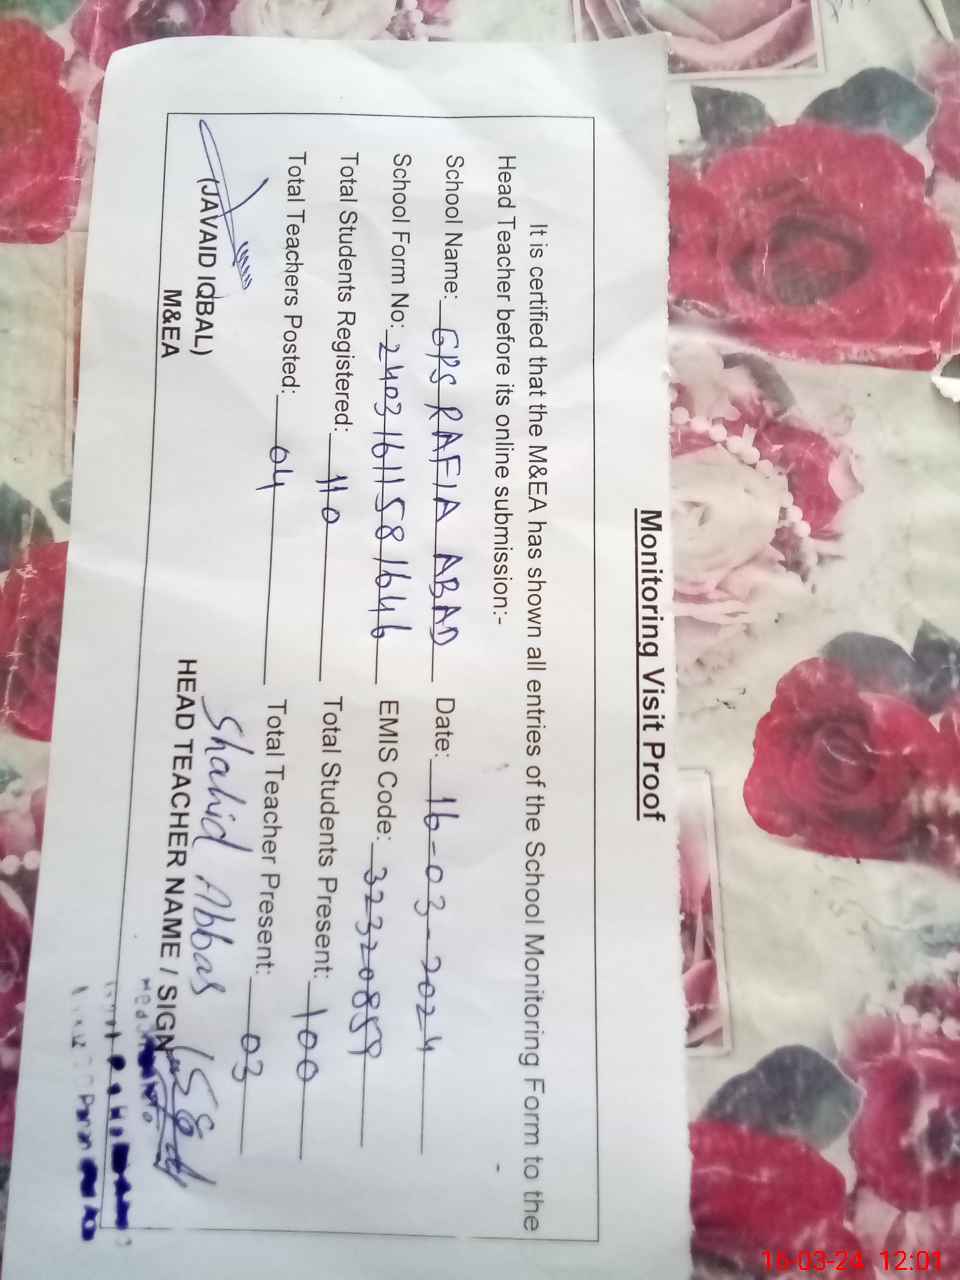 Monitoring Visit Proof
It is certified that the M&EA has shown all entries of the School Monitoring Form to the
Head Teacher before its online submission:-
School Name: GPS RAFIA ABAD Date: 16-03-2024
School Form No: 2403161158 1646 EMIS Code: 32320859
Total Students Registered: 110 Total Students Present: 100
Total Teachers Posted: 04 Total Teacher Present: 03
Shahid Abbas
(JAVAID IQBAL)
M&EA
HEAD TEACHER NAME / SIGN
16-03-24 12:01